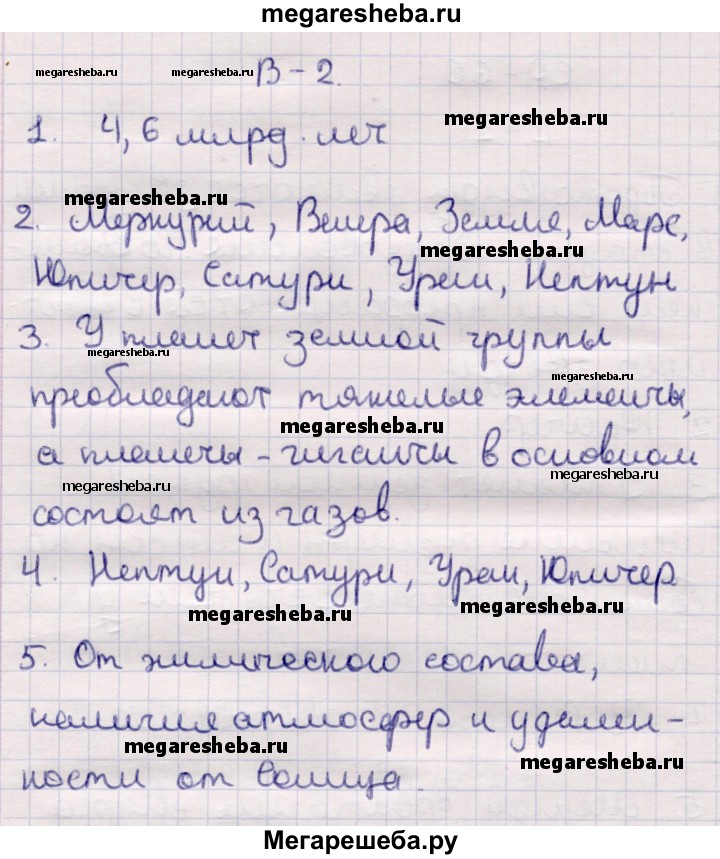 megaresheba.ru
В-2.
megaresheba.ru megaresheba.ru
1. 4,6 млрд. лет
megaresheba.ru
megaresheba.ru
2. Меркурий, Венера, Земля, Марс,
megaresheba.ru
Юпитер, Сатурн, Уран, Нептун
3. У планет земной группы
megaresheba.ru
megaresheba.ru
преобладают тяжелые элементы,
megaresheba.ru
а планеты-гиганты в основном
megaresheba.ru megaresheba.ru
состоят из газов.
4. Нептун, Сатурн, Уран, Юпитер
megaresheba.ru megaresheba.ru
5. От химического состава,
наличия атмосфер и удален-
megaresheba.ru megaresheba.ru
ности от Солнца.
Мегарешеба.ру